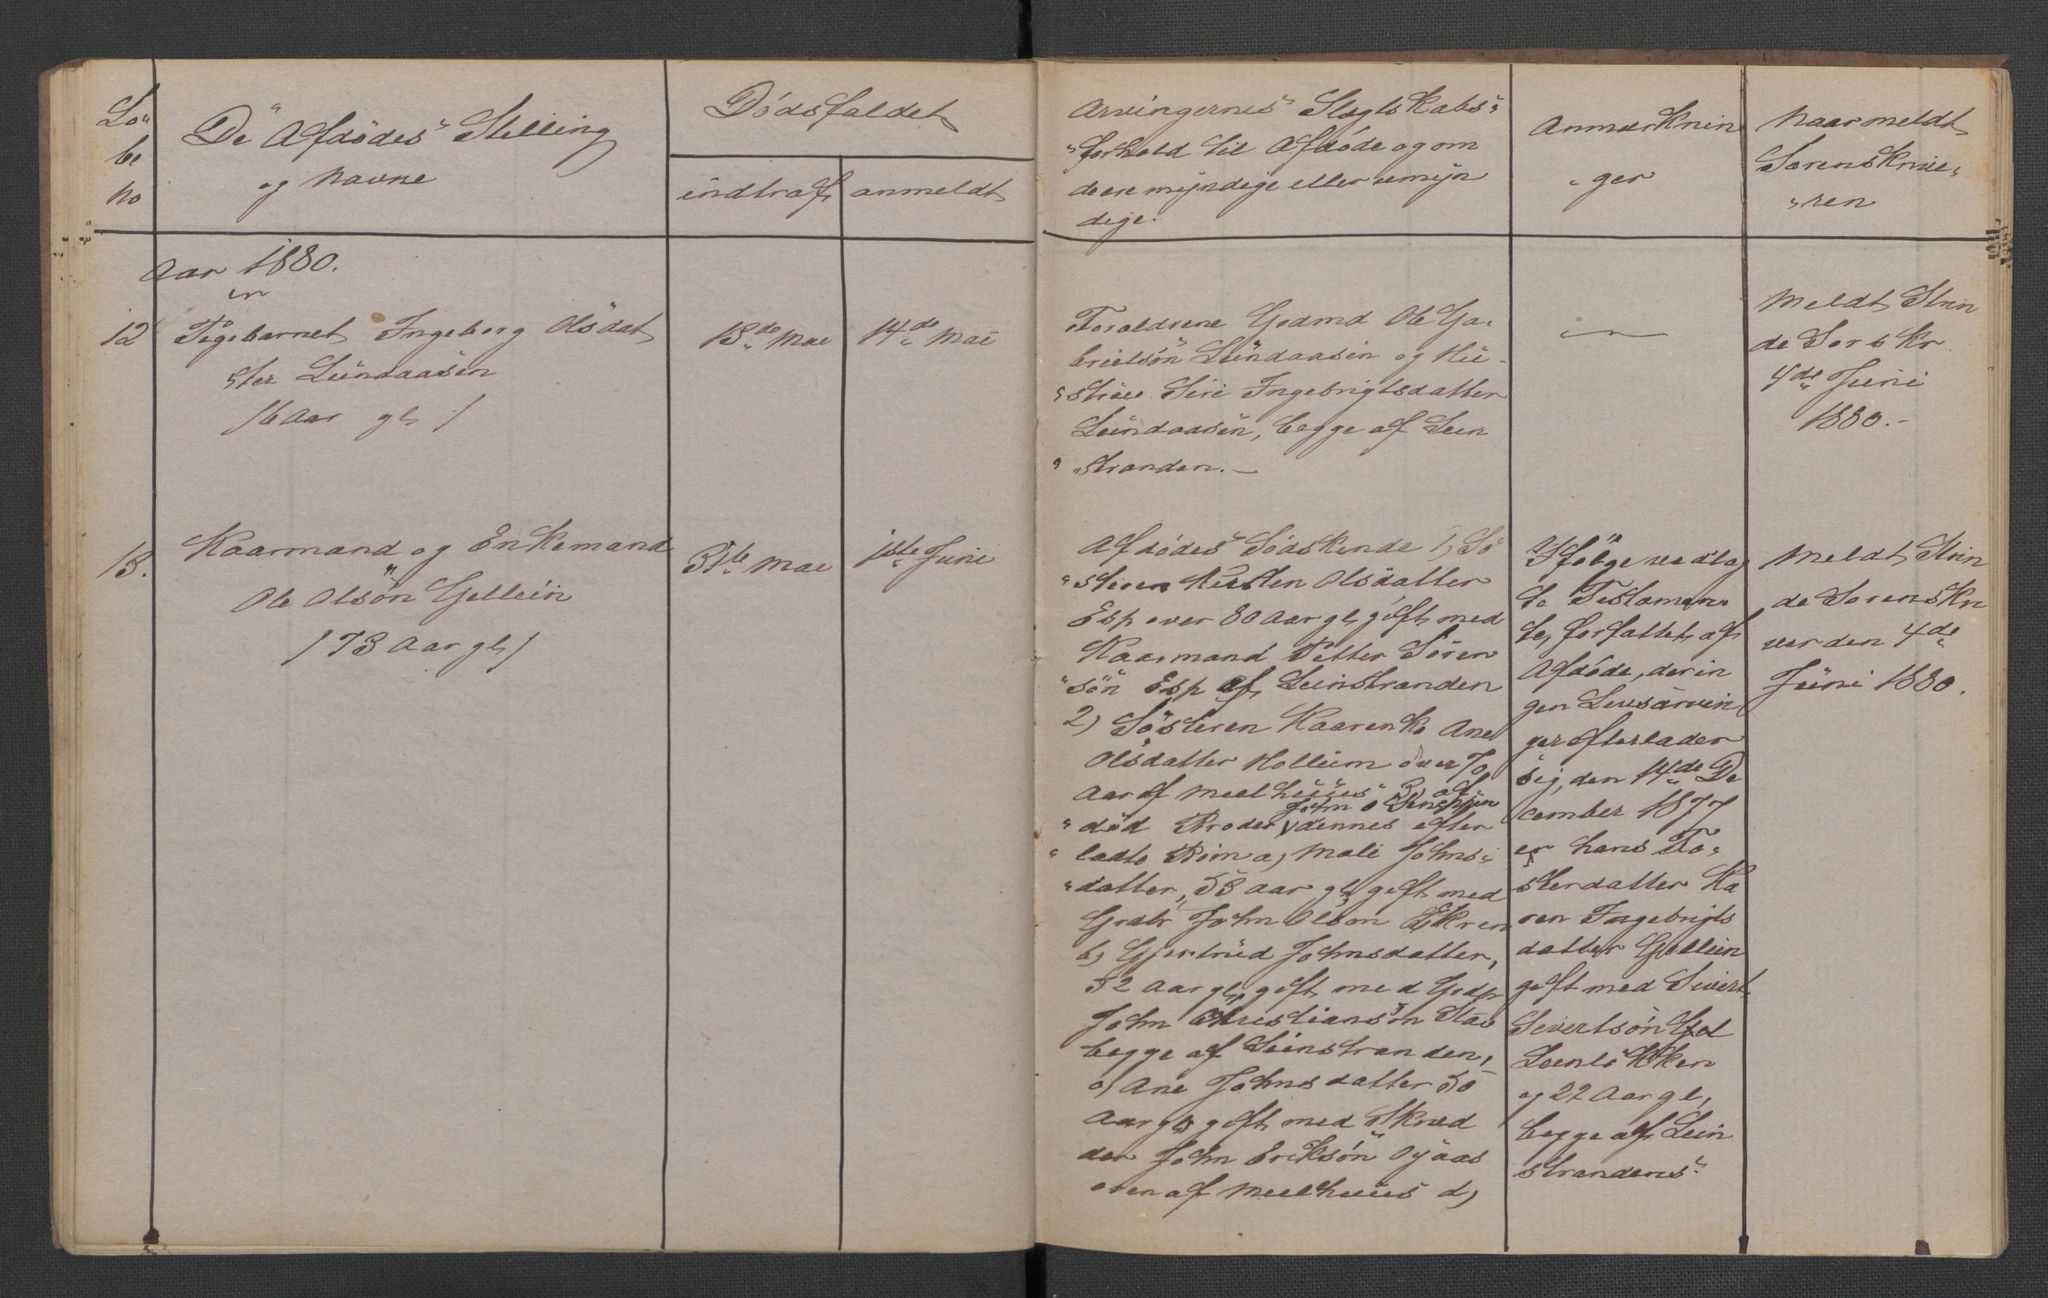 Lö
be
No
De Afdödes Stilling
og Navne
Dödsfaldet
indtraf
anmeldt
Arvingernes Slegtskabs
forhold til Afdöde og om
de ere myndige eller umyn
dige.
Anmærknin
ger
Naar meldt
Sorenskrive
ren
Aar 1880.
12
Pigebarnet Ingeborg Olsdat
ter Lundaasen
/6 Aar gl/
13de Mai
14de Mai
Foraldrene Grdmd Ole Ga
brielsön Lundaasen og Hu
strue Siri Ingebrigtsdatter
Lundaasen, begge af Lein
stranden. —
—
Meldt Strin
de Sorskr
4de Juni
1880. -
13.
Kaarmand og Enkemand
Ole Olsön Gellein
/73 Aar gl/
31te Mai
1ste Juni
Afdödes Södskende 1) Sö
steren Kirsten Olsdatter
Esp over 80 Aar gl, gift med
Kaarmand Petter Sören
sön Esp af Leinstranden
2) Sösteren Kaarenk Ane
Olsdatter Hollum over 70
Aar af Meelhuus 3) af
John O
död Broder dennes efter
ladte Börn a) Mali Johns
datter, 58 aar gl gift med
Grdbr John Olson Ekren
b) Gjertrud Johnsdatter,
52 Aar gl, gift med Grdbr
John Christiansön Stav
begge af Leinstranden,
c) Ane Johnsdatter 50
Aar gl gift med Skræd
der John Eriksön Öyaas
eren af Meelhuus d)
Ifölge vedlag
te Testamen
te, forfattet af
Afdöde, der in
gen Livsarvin
ger efterlader
sig, den 14de De
cember 1877
er hans Sö
sterdatter Ka
ren Ingebrigts
datter Gellein
gift med Sivert
Sivertsön Gel
leinlökken
og 22 Aar gl,
begge af Lein
strandens.
Meldt Strin
de Sorenskri
ver den 4de
Juni 1880.